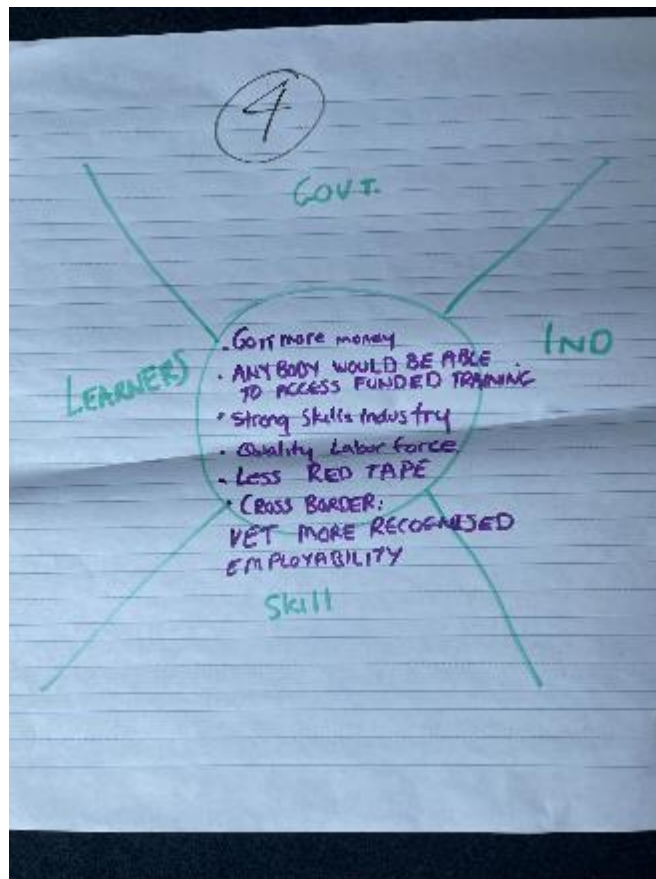 4
GOVT.
IND
LEARNERS
. Govt more money
. ANYBODY WOULD BE ABLE
TO ACCESS FUNDED TRAINING
• Strong Skills industry
. Quality Labor force
. LESS RED TAPE
• CROSS BORDER:
VET MORE RECOGNISED
EMPLOYABILITY
Skill